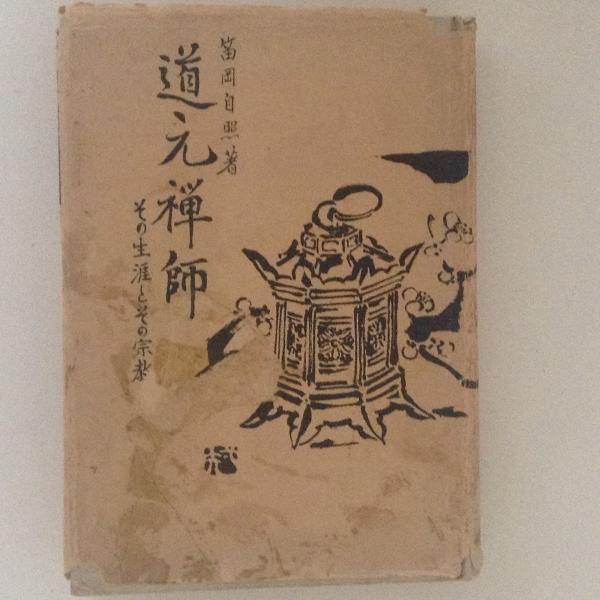 笛岡自照著
道元禅師
その生涯とその宗教